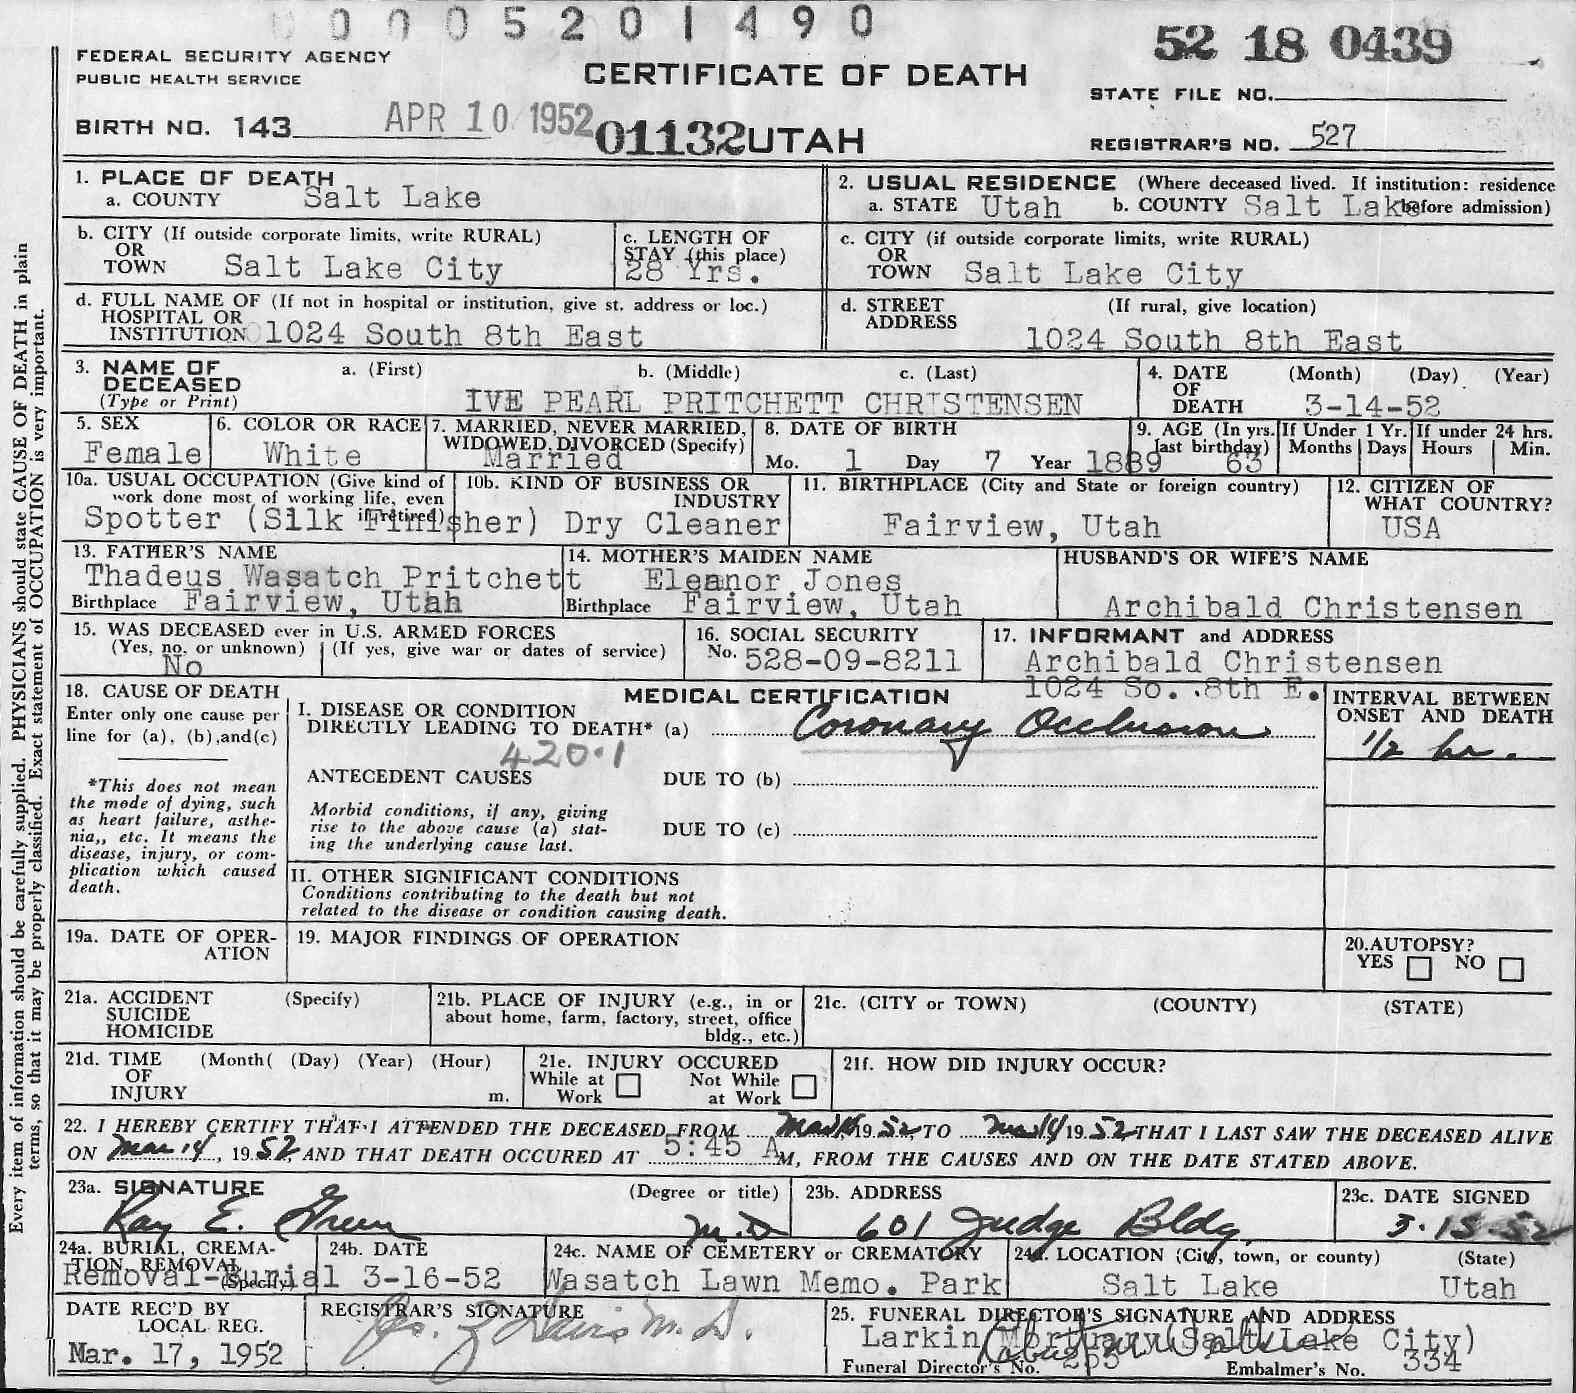 0 0 0 5 2 0 1 4 9 0
52 18 0439
FEDERAL SECURITY AGENCY
PUBLIC HEALTH SERVICE
CERTIFICATE OF DEATH
STATE FILE NO.
BIRTH NO. 143
APR 10 1952
01132 UTAH
REGISTRAR'S NO. 527
1. PLACE OF DEATH
a. COUNTY Salt Lake
2. USUAL RESIDENCE (Where deceased lived. If institution: residence before admission)
a. STATE Utah b. COUNTY Salt Lake
b. CITY (If outside corporate limits, write RURAL)
OR
TOWN Salt Lake City
c. LENGTH OF
STAY (this place)
28 Yrs.
c. CITY (if outside corporate limits, write RURAL)
OR
TOWN Salt Lake City
d. FULL NAME OF (If not in hospital or institution, give st. address or loc.)
HOSPITAL OR
INSTITUTION 1024 South 8th East
d. STREET (If rural, give location)
ADDRESS
1024 South 8th East
3. NAME OF a. (First) b. (Middle) c. (Last)
DECEASED
(Type or Print) IVE PEARL PRITCHETT CHRISTENSEN
4. DATE (Month) (Day) (Year)
OF
DEATH 3-14-52
5. SEX
Female
6. COLOR OR RACE
White
7. MARRIED, NEVER MARRIED,
WIDOWED, DIVORCED (Specify)
Married
8. DATE OF BIRTH
Mo. 1 Day 7 Year 1889
9. AGE (In yrs.
last birthday) 63
If Under 1 Yr.
Months Days
If under 24 hrs.
Hours Min.
10a. USUAL OCCUPATION (Give kind of
work done most of working life, even
if retired)
Spotter (Silk Finisher)
10b. KIND OF BUSINESS OR
INDUSTRY
Dry Cleaner
11. BIRTHPLACE (City and State or foreign country)
Fairview, Utah
12. CITIZEN OF
WHAT COUNTRY?
USA
13. FATHER'S NAME
Thadeus Wasatch Pritchett
Birthplace Fairview, Utah
14. MOTHER'S MAIDEN NAME
Eleanor Jones
Birthplace Fairview, Utah
HUSBAND'S OR WIFE'S NAME
Archibald Christensen
15. WAS DECEASED ever in U.S. ARMED FORCES
(Yes, no, or unknown) (If yes, give war or dates of service)
No
16. SOCIAL SECURITY
No. 528-09-8211
17. INFORMANT and ADDRESS
Archibald Christensen
1024 So. 8th E.
18. CAUSE OF DEATH
Enter only one cause per
line for (a), (b), and (c)
*This does not mean
the mode of dying, such
as heart failure, asthe-
nia,, etc. It means the
disease, injury, or com-
plication which caused
death.
MEDICAL CERTIFICATION
I. DISEASE OR CONDITION
DIRECTLY LEADING TO DEATH* (a) Coronary Occlusion
420.1
ANTECEDENT CAUSES DUE TO (b)
Morbid conditions, if any, giving
rise to the above cause (a) stat-
ing the underlying cause last.
DUE TO (c)
II. OTHER SIGNIFICANT CONDITIONS
Conditions contributing to the death but not
related to the disease or condition causing death.
INTERVAL BETWEEN
ONSET AND DEATH
1/2 hr.
19a. DATE OF OPER-
ATION
19. MAJOR FINDINGS OF OPERATION
20. AUTOPSY?
YES NO
21a. ACCIDENT (Specify)
SUICIDE
HOMICIDE
21b. PLACE OF INJURY (e.g., in or
about home, farm, factory, street, office
bldg., etc.)
21c. (CITY or TOWN) (COUNTY) (STATE)
21d. TIME (Month( (Day) (Year) (Hour)
OF
INJURY m.
21e. INJURY OCCURED
While at Work Not While at Work
21f. HOW DID INJURY OCCUR?
22. I HEREBY CERTIFY THAT I ATTENDED THE DECEASED FROM Mar 14, 19 52, TO Mar 14 19 52 THAT I LAST SAW THE DECEASED ALIVE
ON Mar 14, 19 52, AND THAT DEATH OCCURED AT 5:45 A M, FROM THE CAUSES AND ON THE DATE STATED ABOVE.
23a. SIGNATURE (Degree or title)
Ray E. Green M.D
23b. ADDRESS
601 Judge Bldg.
23c. DATE SIGNED
3-15-52
24a. BURIAL, CREMA-
TION, REMOVAL
(Specify)
Removal-Burial
24b. DATE
3-16-52
24c. NAME OF CEMETERY or CREMATORY
Wasatch Lawn Memo. Park
24d. LOCATION (City, town, or county) (State)
Salt Lake Utah
DATE REC'D BY
LOCAL REG.
Mar. 17, 1952
REGISTRAR'S SIGNATURE
M.D.
25. FUNERAL DIRECTOR'S SIGNATURE AND ADDRESS
Larkin Mortuary (Salt Lake City)
Funeral Director's No. 253 Embalmer's No. 334
Every item of information should be carefully supplied. PHYSICIANS should state CAUSE OF DEATH in plain
terms, so that it may be properly classified. Exact statement of OCCUPATION is very important.